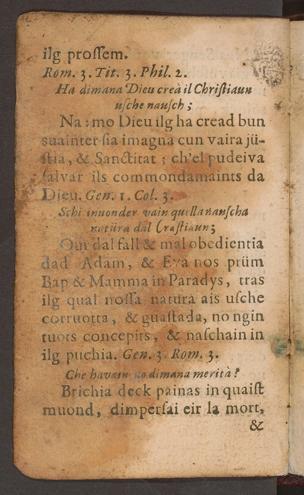 ilg prossem.
Rom. 3. Tit. 3. Phil. 2.
Ha dimana Dieu creà il Christiaun
usche nausch;
Na: mo Dieu ilg ha cread bun
suainter sia imagna cun vaira jü-
stia, & Sanctitat; ch'el pudeiva
salvar ils commondamaints da
Dieu. Gen. 1. Col. 3.
Schi inuonder vain quella nauscha
natüra dal Crastiaun;
Our dal fall & mal obedientia
dad Adam, & Eva nos prüm
Bap & Mamma in Paradys, tras
ilg qual nossa natura ais usche
corruotta, & guastada, no ngin
tuots concepits, & naschain in
ilg puchia. Gen. 3. Rom. 3.
Che havain no dimana merità?
Brichia deck painas in quaist
muond, dimpersai eir la mort,
&